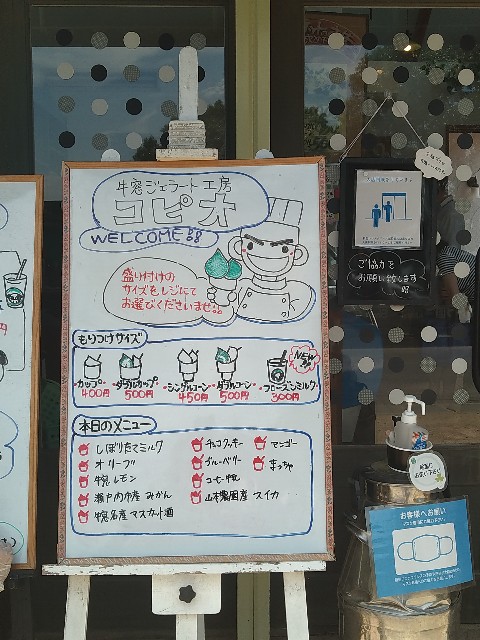 牛窓ジェラート工房
コピオ
WELCOME
盛り付けの
サイズをレジにて
お選びくださいませ!!
もりつけサイズ
・カップ
400円
・ダブルカップ
500円
・シングルコーン
450円
・ダブルコーン
500円
・フローズンミルク
300円
NEW
本日のメニュー
しぼりたてミルク
オリーブ
牛窓レモン
瀬戸内市産 みかん
牛窓名産マスカット酒
チョコクッキー
ブルーベリー
コーヒー牛乳
山本農園産 スイカ
マンゴー
まっちゃ
ご協力を
お願い致します
お客様へお願い